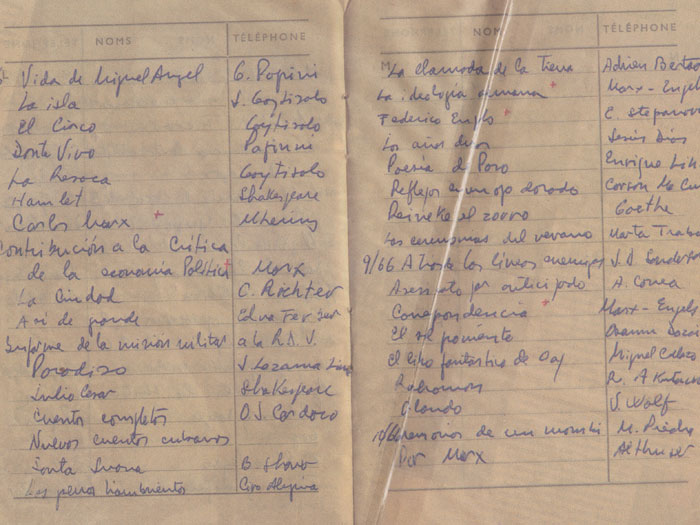 NOMS TÉLÉPHONE
Vida de Miguel Angel G. Papini
La isla J. Goytisolo
El Circo Goytisolo
Dante Vivo Papinni
La Resaca Goytisolo
Hamlet Shakespeare
Carlos Marx + Mhering
Contribución a la Crítica
de la economía Política + Marx
La Ciudad C. Richter
Así de grande Edna Ferber
Informe de la misión militar a la R.D.V.
Paradiso J. Lezama Lima
Julio Cesar Shakespeare
Cuentos completos O.J. Cardoso
Nuevos cuentos cubanos
Santa Juana B. Shaw
Los perros hambrientos Ciro Alegria
NOMS TÉLÉPHONE
La de la Tierra Adrien
La ideología alemana + Marx-Engels
Federico Engls + E. Stepanova
Los años duros Jesús Díaz
Poesía de Paro Enrique Lih
Reflejos en un ojo dorado Carson Mc Cu
Reineke el zorro Goethe
Los ceremonias del verano Marta Traba
9/66 A través las lineas enemigas
Asesinato por anticipado A. Correa
Correspondencia + Marx-Engels
El sol poniente Osamu Dazai
El libro fantástico de Oaj Miguel Collazo
Rashomon R. Akuta
Orlando V. Wolf
10/66 Memorias de un M. Piedra
Por Marx Althuser